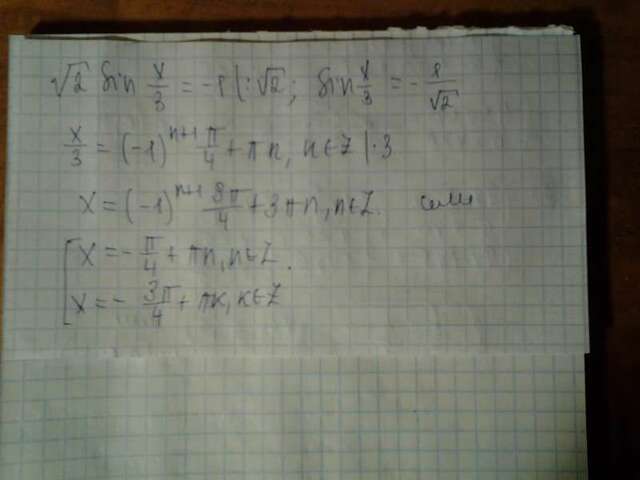 √2 sin x/3 = -1 |:√2; sin x/3 = -1/√2
x/3 = (-1)^{n+1} π/4 + πn, n∈Z |·3
x = (-1)^{n+1} 3π/4 + 3πn, n∈Z.
[x = -π/4 + πn, n∈Z.
x = -3π/4 + πk, k∈Z